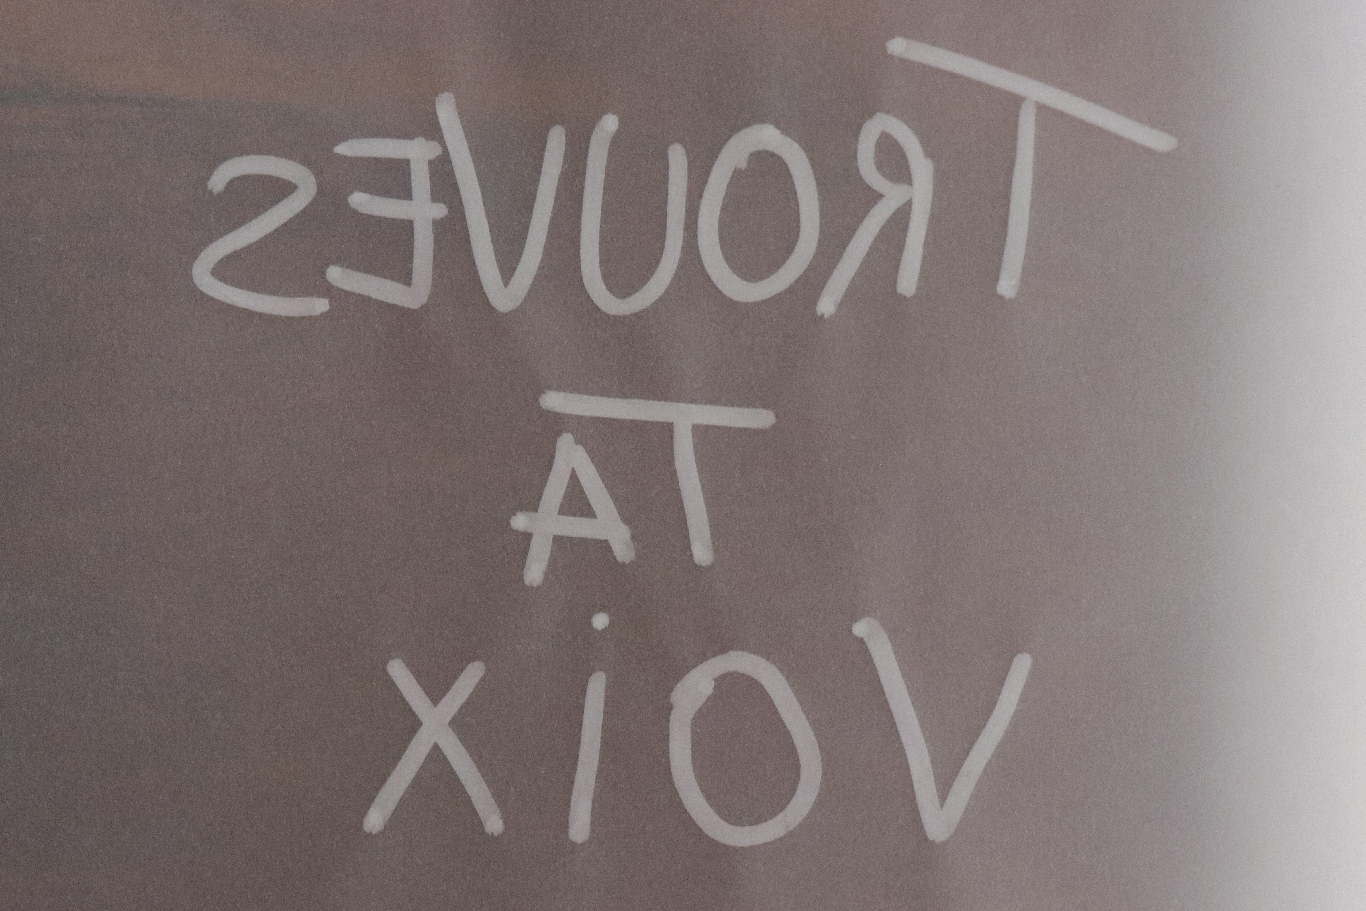 TROUVES
TA
VOiX